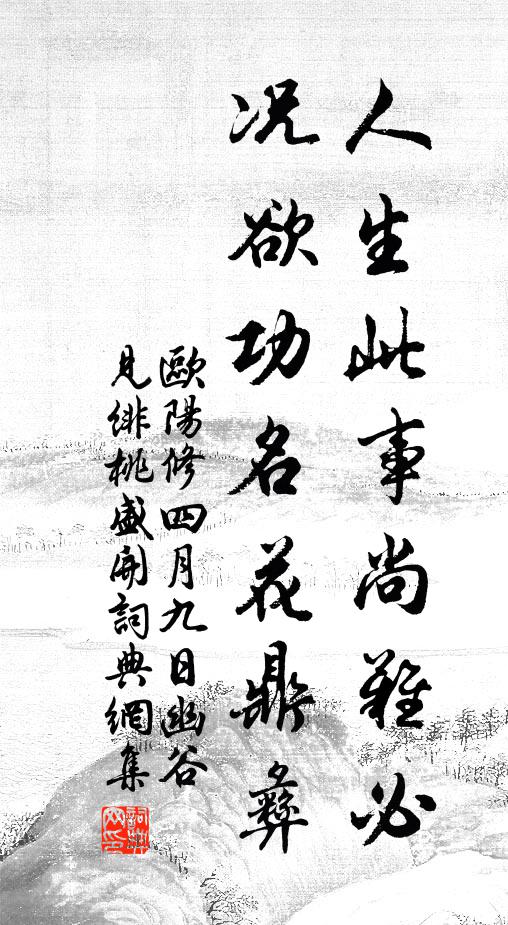 人生此事尚難必
况欲功名花鼎彝
歐陽修四月九日幽谷
見緋桃盛開詞典網集